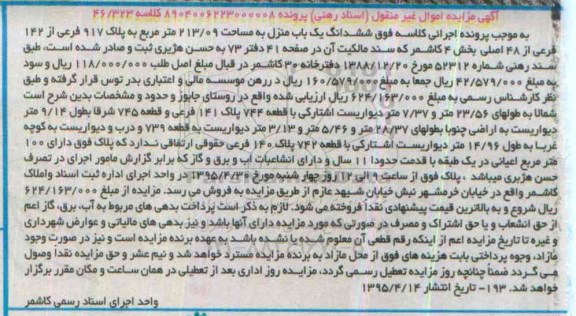 آگهی مزایده اموال غیر منقول (اسناد رهنی) پرونده ۸۹۰۴۰۰۶۲۲۳۰۰۰۰۰۸ کلاسه ۴۶/۳۲۳
به موجب پرونده اجرائی کلاسه فوق ششدانگ یک باب منزل به مساحت ۲۱۳/۰۹ متر مربع به پلاک ۹۱۷ فرعی از ۱۴۲
فرعی از ۴۸ اصلی بخش ۴ کاشمر که سند مالکیت آن در صفحه ۴۱ دفتر ۷۳ به حسن هژبری ثبت و صادر شده است، طبق
سند رهنی شماره ۵۲۳۱۲ مورخ ۱۳۸۸/۱۲/۲۰ دفترخانه ۳۰ کاشمر در قبال مبلغ اصل طلب ۱۱۸/۰۰۰/۰۰۰ ریال و سود
به مبلغ ۴۲/۵۷۹/۰۰۰ ریال جمعا به مبلغ ۱۶۰/۵۷۹/۰۰۰ ریال در رهن موسسه مالی و اعتباری بدر توس قرار گرفته و طبق
نظر کارشناس رسمی به مبلغ ۶۲۴/۱۶۳/۰۰۰ ریال ارزیابی شده واقع در روستای جابوز و حدود و مشخصات بدین شرح است
شمالا به طولهای ۲۳/۵۶ متر و ۷/۳۷ متر دیواریست اشتراکی با قطعه ۷۴۴ پلاک ۱۴۱ فرعی و قطعه ۷۴۵ شرقا بطول ۹/۱۴ متر
دیواریست به اراضی جنوبا بطولهای ۲۸/۳۷ متر و ۵/۴۶ متر و ۳/۱۳ متر دیواریست به قطعه ۷۳۹ و درب و دیواریست به کوچه
غربا به طول ۱۴/۹۶ متر دیواریست اشتراکی با قطعه ۷۴۲ پلاک ۱۴۰ فرعی حقوقی ارتفاقی ندارد که پلاک فوق دارای ۱۰۰
متر مربع اعیانی در یک طبقه با قدمت حدودا ۱۱ سال و دارای انشاعبات آب و برق و گاز که برابر گزارش مامور اجرای در تصرف
حسن هژبری میباشد ، پلاک فوق از ساعت ۹ الی ۱۲ روز چهار شنبه مورخ ۱۳۹۵/۴/۳۰ در واحد اجرای اداره ثبت اسناد واملاک
کاشمر واقع در خیابان خرمشهر نبش خیابان شهید عازم از طریق مزایده به فروش می رسد. مزایده از مبلغ ۶۲۴/۱۶۳/۰۰۰
ریال شروع و به بالاترین قیمت پیشنهادی نقدا فروخته می شود. لازم به ذکر است پرداخت بدهی های مربوط به آب، برق، گاز اعم
از حق انشعاب و یا حق اشتراک و مصرف در صورتی که مورد مزایده دارای آنها باشد و نیز بدهی های مالیاتی و عوارض شهرداری
و غیره تا تاریخ مزایده اعم از اینکه رقم قطعی آن معلوم شده یا نشده باشد به عهده برنده مزایده است و نیز در صورت وجود
مازاد، وجوه پرداختی بابت هزینه های فوق از محل مازاد به برنده مزایده مسترد خواهد شد و نیم عشر و حق مزایده نقدا وصول
می گردد ضمنا چنانچه روز مزایده تعطیل رسمی گردد، مزایده روز اداری بعد از تعطیلی در همان ساعت و مکان مقرر برگزار
خواهد شد. ۱۹۳- تاریخ انتشار ۱۳۹۵/۴/۱۴
واحد اجرای اسناد رسمی کاشمر